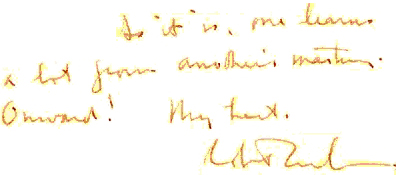 As it is, one learns
a lot from another's mastery.
Onward! My best.
Robert